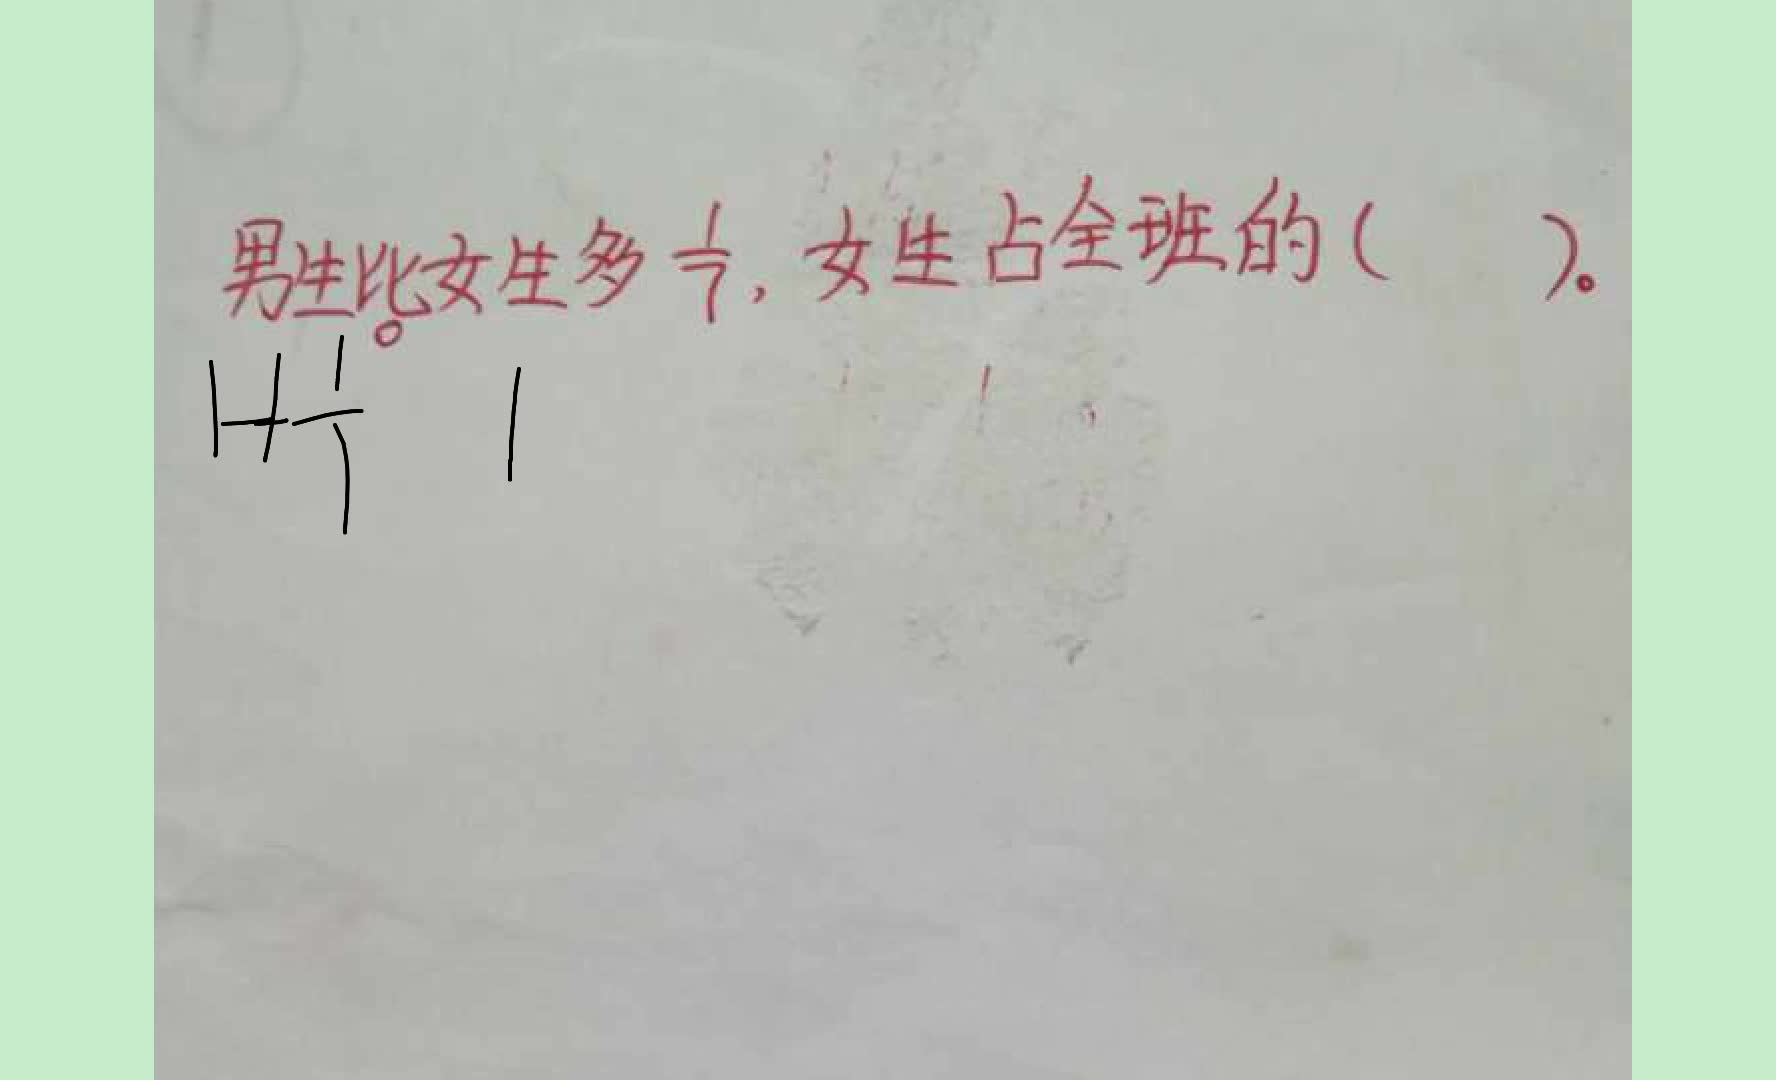 男生比女生多1/7,女生占全班的( )。
1+1/7 1